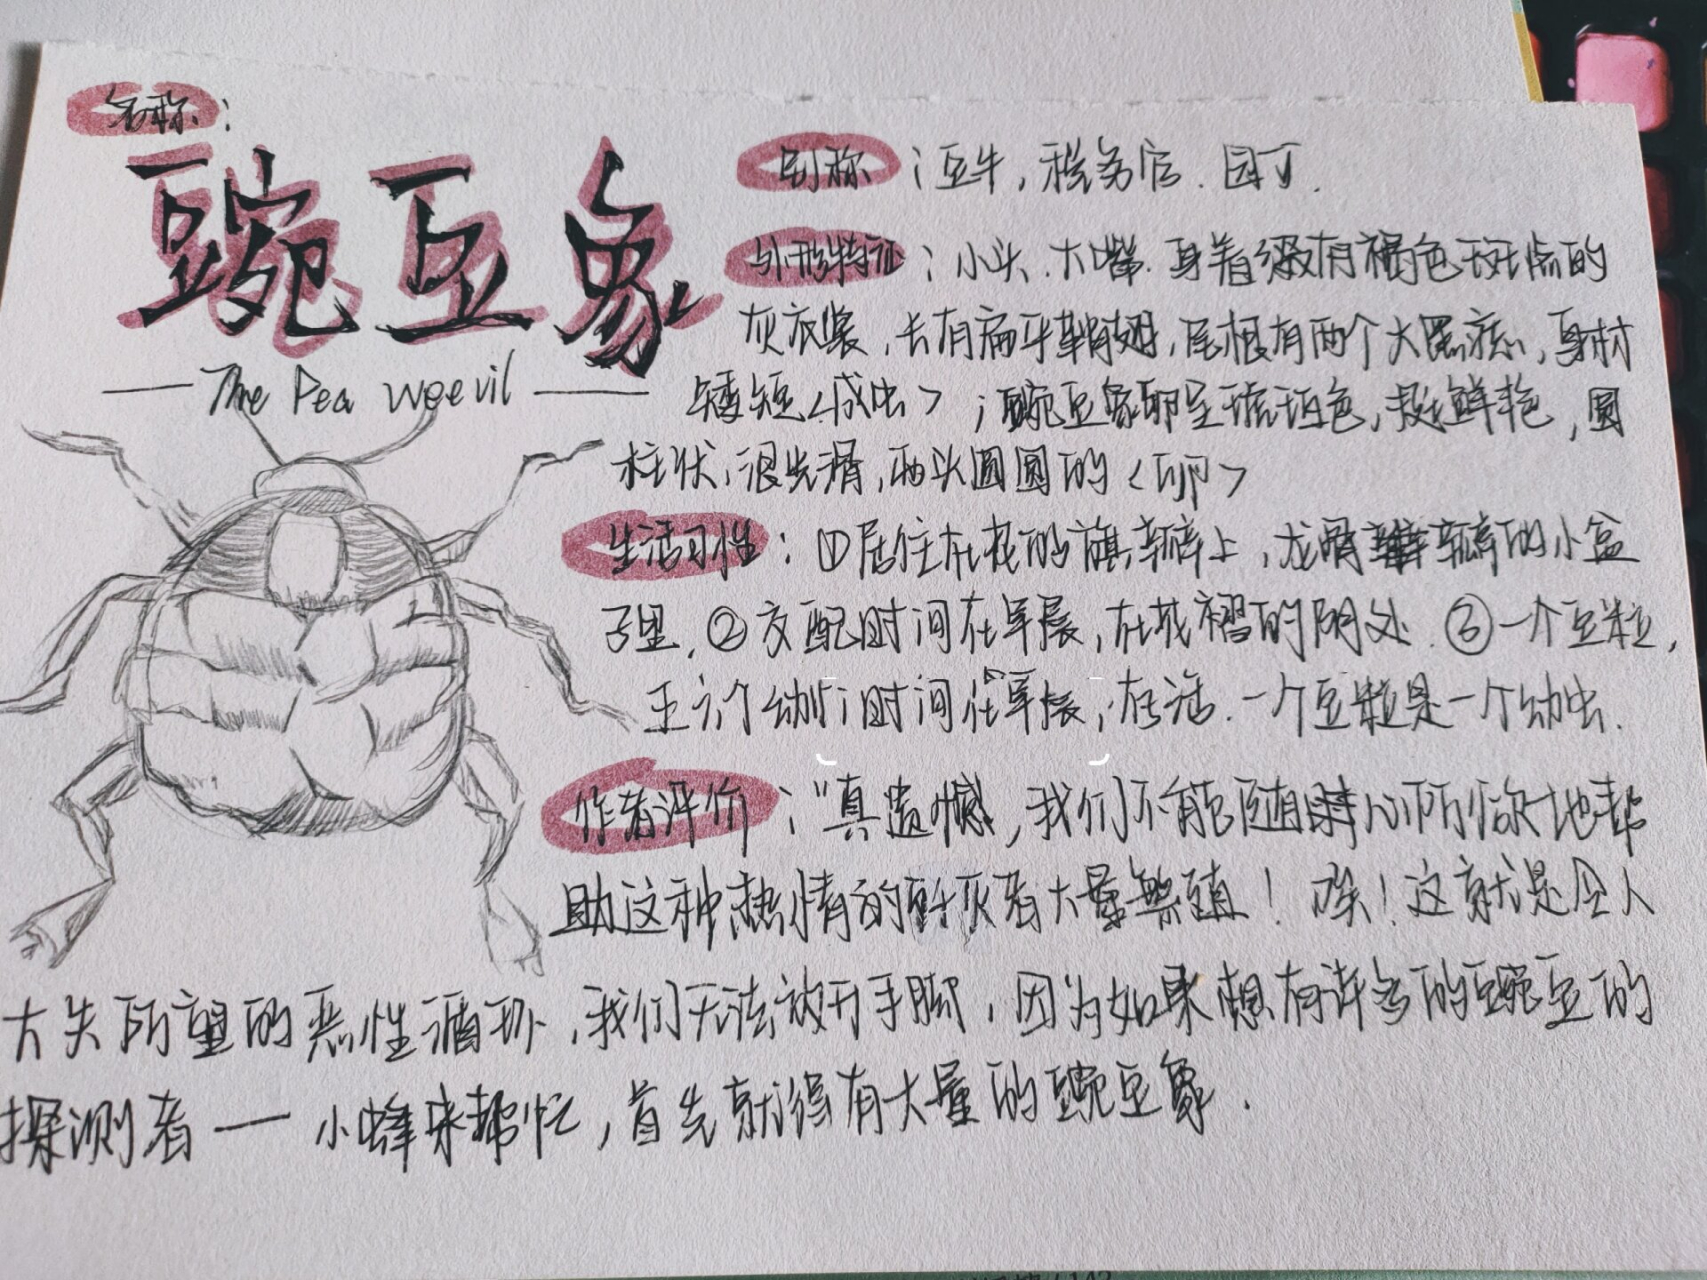 名称:
豌豆象
The Pea weevil
别称:豆牛,税务官.园丁.
外形特征:小头.大嘴.身着缀有褐色斑点的
灰衣裳,长有扁平鞘翅,尾根有两个大黑痣,身材
矮短<成虫>;豌豆象卵呈琥珀色,挺鲜艳,圆
柱状,很光滑,两头圆圆的<卵>
生活习性:①居住在花的旗瓣上,龙骨瓣的小盆
子里.②交配时间在早晨,在花褶的阴处.③一个豆粒,
五六个幼 时间在早晨,在活.一个豆粒是一个幼虫.
作者评价:"真遗憾,我们不能随心所欲地帮
助这种热情的 大量繁殖!唉!这就是令人
大失所望的恶性循环,我们无法放开手脚,因为如果想有许多的豌豆的
探测者一小蜂来帮忙,首先就得有大量的豌豆象.